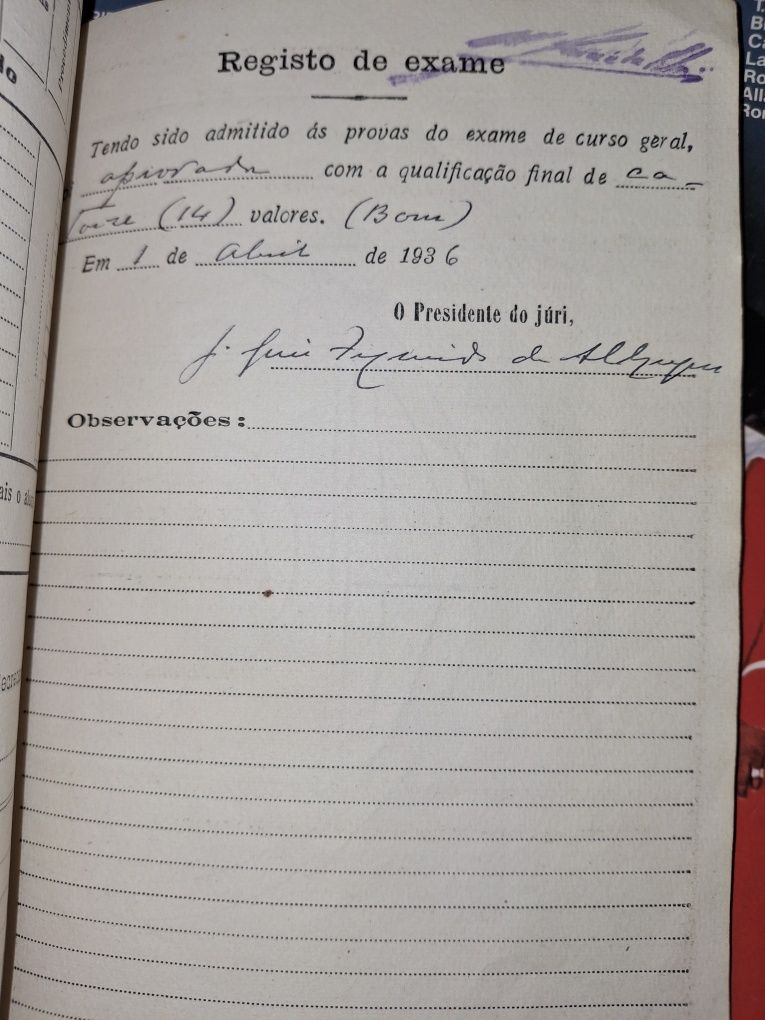 Registo de exame
Tendo sido admitido ás provas do exame de curso geral,
aprovada com a qualificação final de ca-
torze (14) valores. (Bom)
Em 1 de Abril de 1936
O Presidente do júri,
de
Observações:
ais o alu
T.
B
Ca
La
Ro
All
Ron